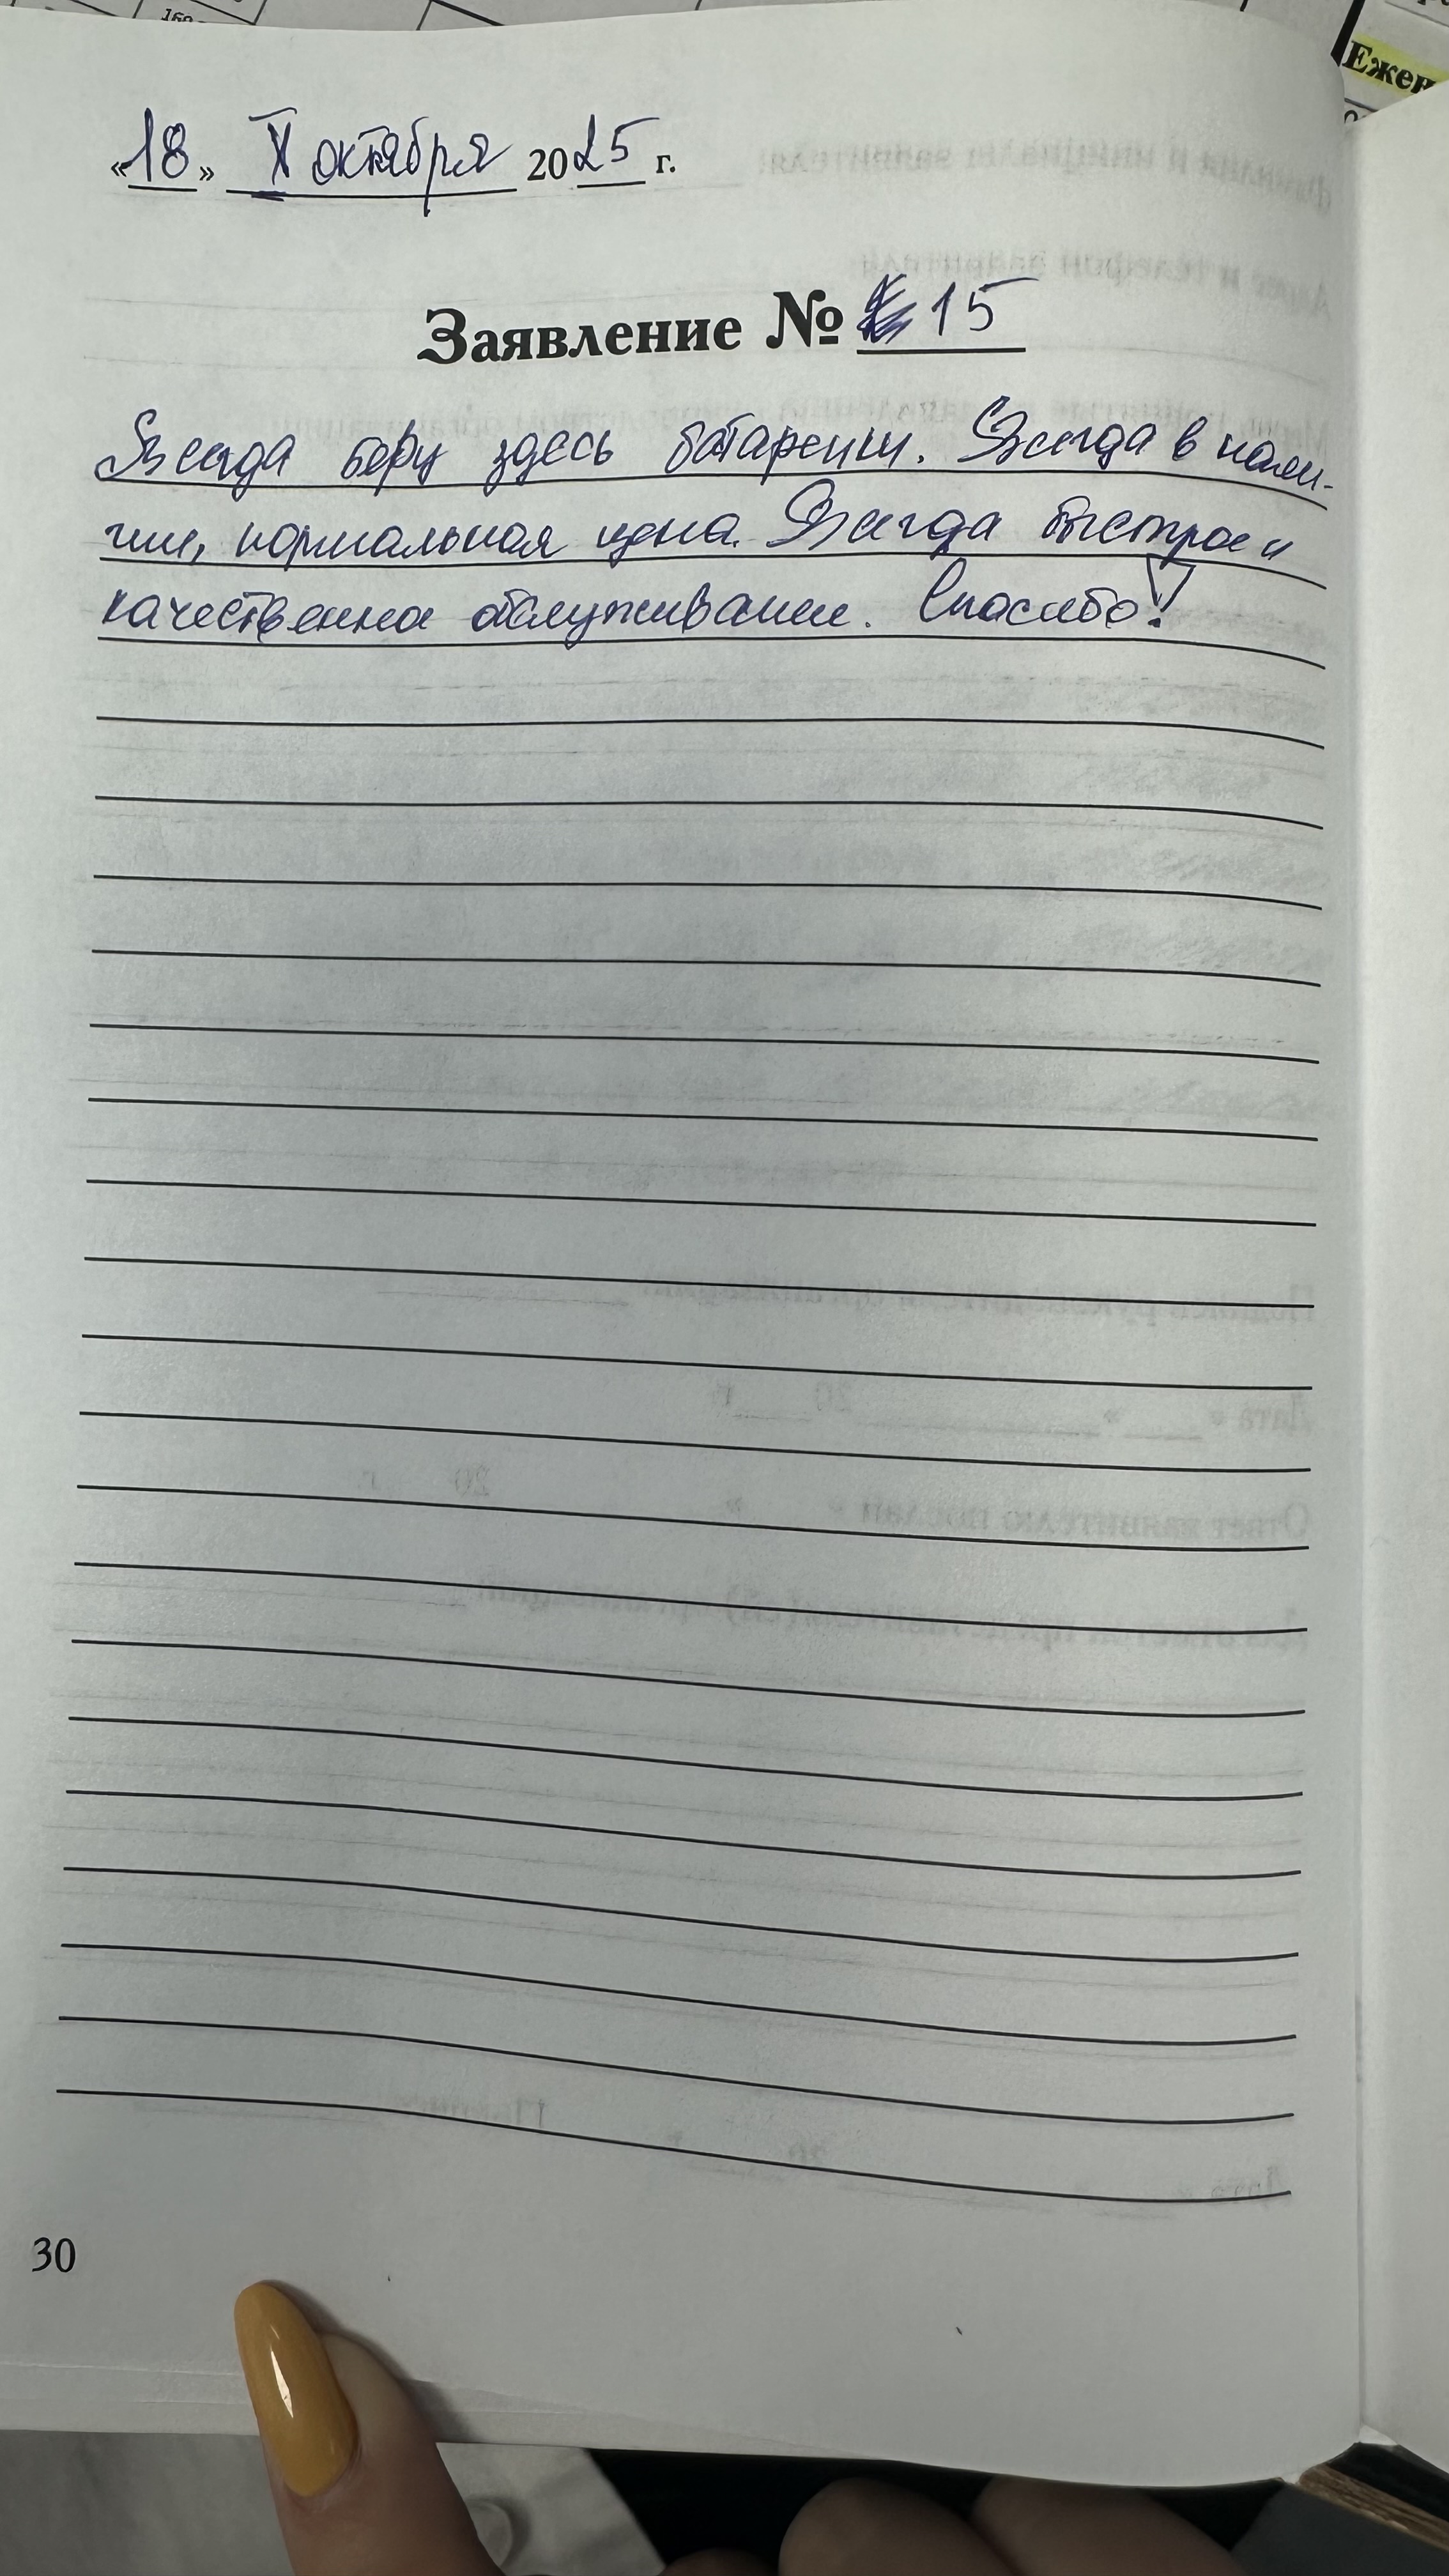 160
Ежен
«18» X октября 2025 г.
Заявление № 15
Всегда беру здесь батарейки. Всегда в нали-
чии, нормальная цена. Всегда быстрое и
качественное обслуживание. Спасибо!
30